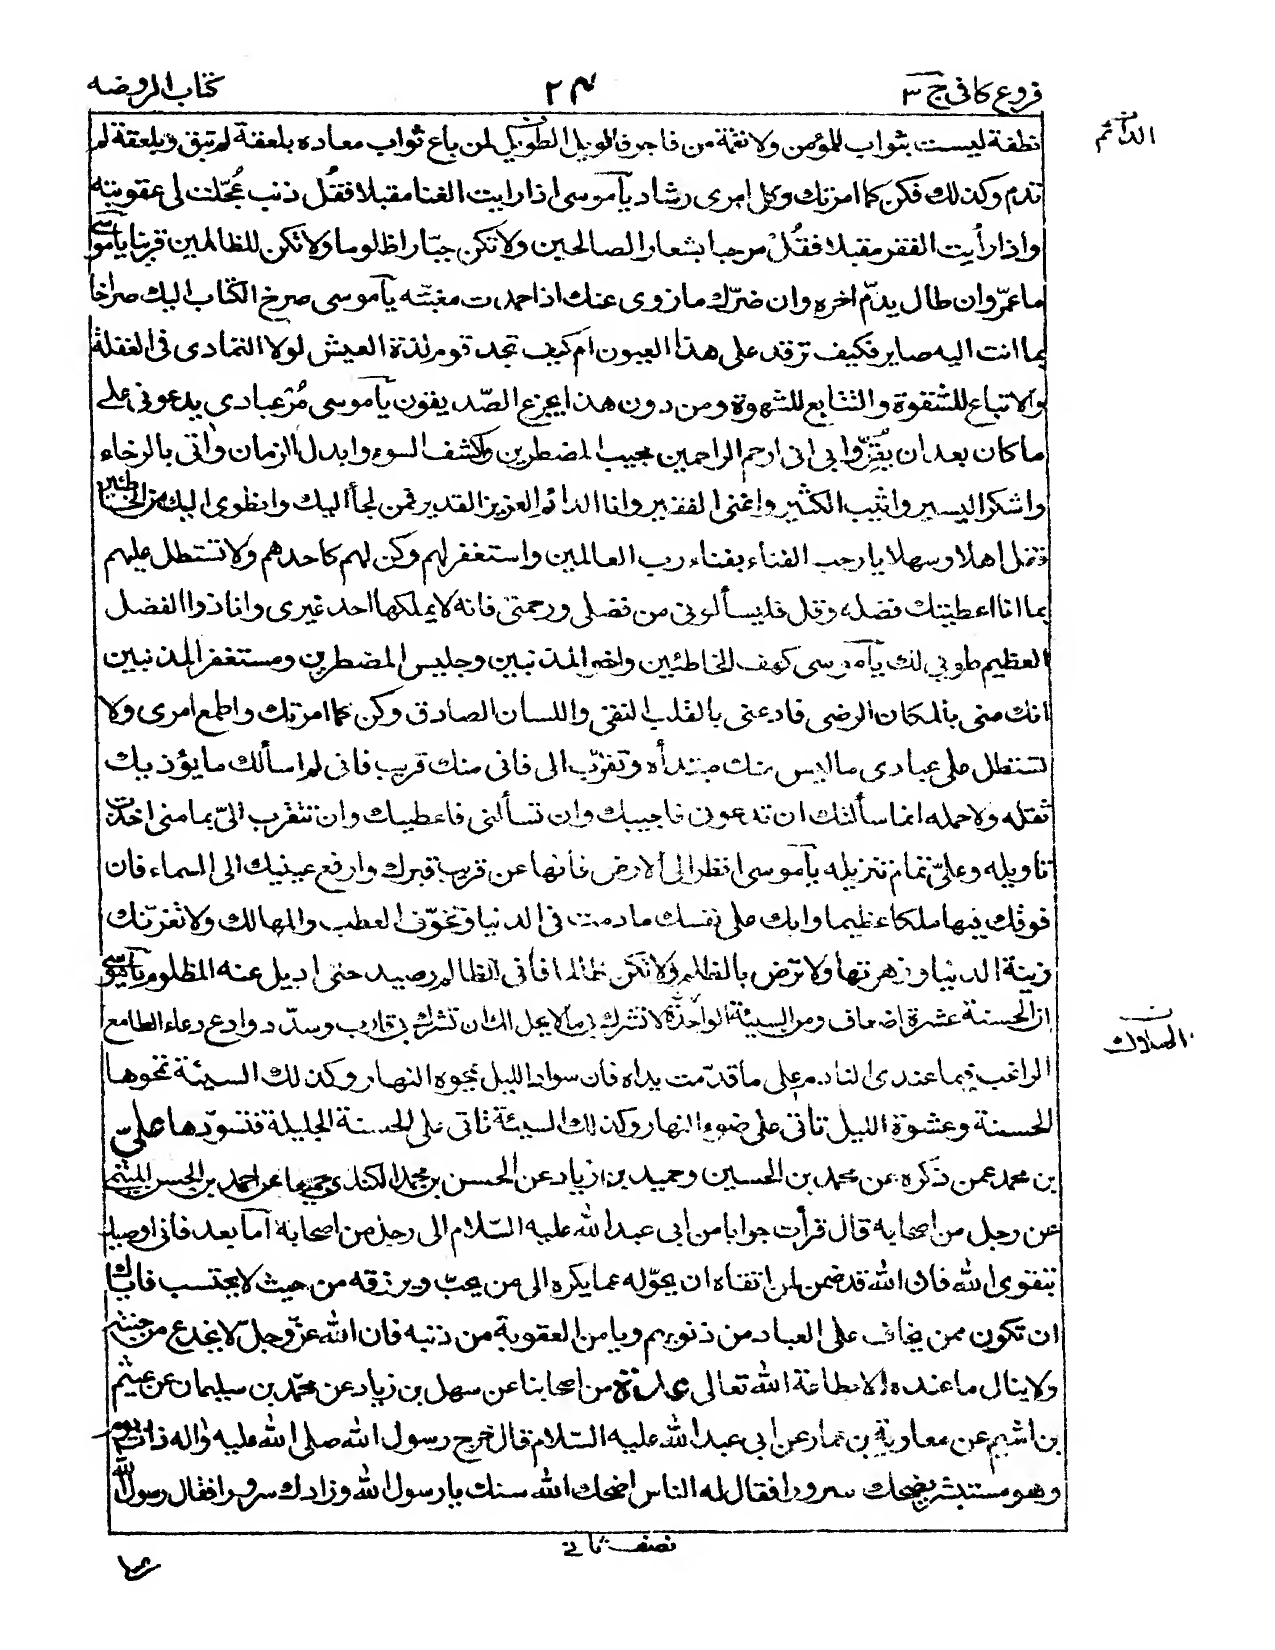 فروع كافى ج ٣
٢٤
كتاب الروضه
نطفة ليست بثواب للمؤمن ولا نقمة من فاجر فالويل الطويل لمن باع ثواب معاده بلعقة لم تبق وبلعقة لم
الدائم
تدم وكذلك فكن كما امرتك وكل امرى رشاد يا موسى اذا رايت الغنا مقبلا فقل ذنب عُجّلت لى عقوبته
واذا رأيت الفقر مقبلا فقُلْ مرحبا بشعار الصالحين ولا تكن جبّارا ظلوما ولا تكن للظالمين قرينا يا موسى
ما عمر وان طال يذمّ اخره وان ضرّك ما زوى عنك اذا حمدت مغبّته يا موسى صرخ الكتاب اليك صراخا
بما انت اليه صاير فكيف ترقد على هذا العيون ام كيف تجد قوم لذة العيش لولا التمادى فى الغفلة
والاتباع للشقوة والتتابع للشهوة ومن دون هذا يجزع الصّديقون يا موسى مُرْ عبادى يدعونى على
ما كان بعد ان يقرّوا بى انى ارحم الراحمين مجيب المضطرين واكشف السوء وابدل الزمان واتى بالرخاء
واشكر اليسير واثيب الكثير واغنى الفقير وانا الدائم العزيز القدير فمن لجأ اليك وانظوى اليك من الخاطئين
فقل اهلا وسهلا يا رحب الفناء بفناء رب العالمين واستغفر لهم وكن لهم كاحدهم ولا تستطل عليهم
بما انا اعطيتك فضله وقل فليسألونى من فضلى ورحمتى فانه لا يملكها احد غيرى وانا ذوا الفضل
العظيم طوبى لك يا موسى كهف الخاطئين واخو المذنبين وجليس المضطرين ومستغفر المذنبين
انك منى بالمكان الرضى فادعنى بالقلب النقى واللسان الصادق وكن كما امرتك واطع امرى ولا
تستطل على عبادى ما ليس منك مبتدأه وتقرّب الى فانى منك قريب فانى لم اسألك ما يؤذيك
ثقله ولا حمله انما سألتك ان تدعونى فاجيبك وان تسألنى فاعطيك وان تتقرب الىّ بما منى اخذت
تاويله وعلىّ تمام تنزيله يا موسى انظر الى الارض فانها عن قريب قبرك وارفع عينيك الى السماء فان
فوقك فيها ملكا عظيما وابك على نفسك ما دمت فى الدنيا وتخوّف العطب والمهالك ولا تغرّنك
زينة الدنيا وزهرتها ولا ترض بالظلم ولا تكن ظالما فانى للظالم رصيد حتى اديل عنه المظلوم يا موسى
ان الحسنة عشرة اضعاف ومن السيئة الواحدة لا تشرك بى ما لا يحل لك ان تشرك بى قارب وسدّد وادع دعاء الطامع
الهلاك
الراغب فيما عندى النادم على ما قدّمت يداه فان سواد الليل يمحوه النهار وكذلك السيئة تمحوها
الحسنة وعشوة الليل تاتى على ضوء النهار وكذلك السيئة تاتى على الحسنة الجليلة فتسوّدها علىّ
بن محمد عمن ذكره عن محمد بن الحسين وحميد بن زياد عن الحسن بن محمد الكندى جميعا عن احمد بن الحسن الميثمى
عن رجل من اصحابه قال قرأت جوابا من ابى عبد الله عليه السّلام الى رجل من اصحابه اما بعد فانى اوصيك
بتقوى الله فان الله قد ضمن لمن اتقاه ان يحوّله عما يكره الى من يحبّ ويرزقه من حيث لا يحتسب فاياك
ان تكون ممن يخاف على العباد من ذنوبهم ويامن العقوبة من ذنبه فان الله عزّ وجلّ لا يخدع من جنته
ولا ينال ما عنده الا بطاعة الله تعالى عدة من اصحابنا عن سهل بن زياد عن محمّد بن سليمان عن عيثم
بن اشيم عن معاوية بن عمار عن ابى عبد الله عليه السّلام قال خرج رسول الله صلى الله عليه واله ذات يوم
وهو مستبشر يضحك سرورا فقال له الناس اضحك الله سنك يا رسول الله وزادك سرورا فقال رسول الله
نصف ثانى